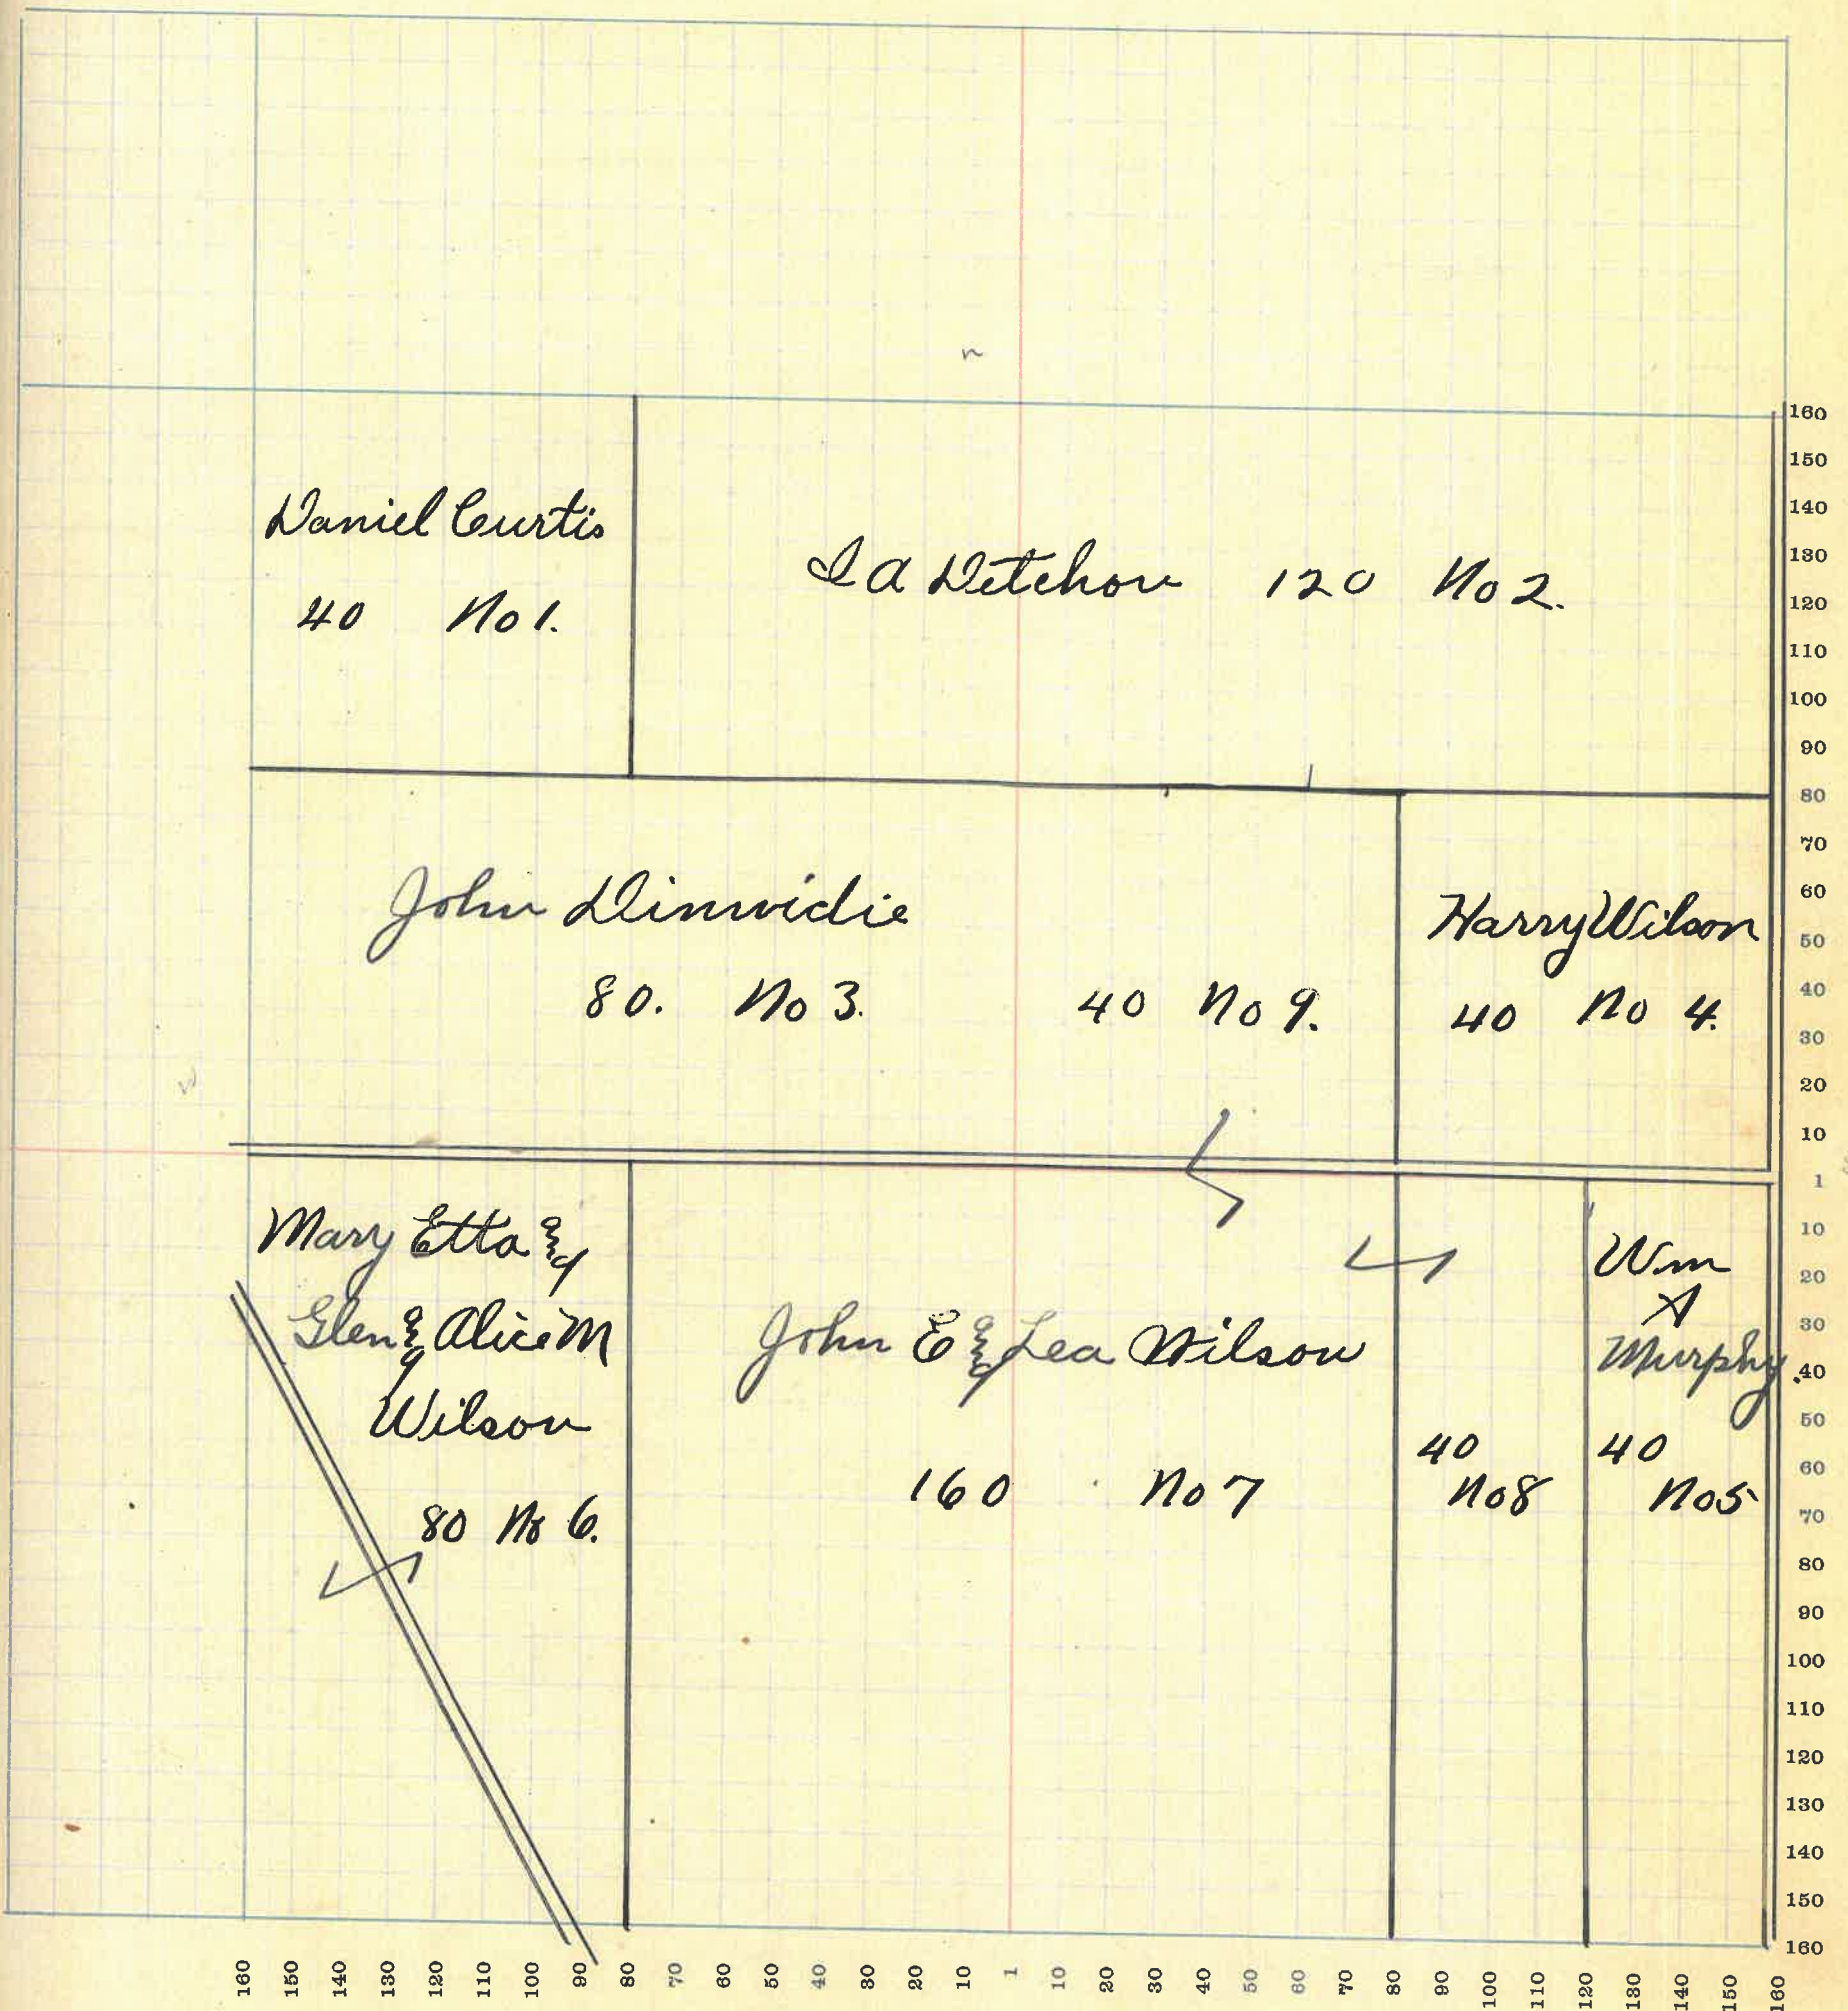 Daniel Curtis
40 No 1.
I A Detchon 120 No 2.
John Dinwidie
80. No 3. 40 No 9.
Harry Wilson
40 No 4.
Mary Etta &
Glen & Alice M
Wilson
80 No 6.
John E & Lea Wilson
160 No 7
40
No 8
Wm
A
Murphy.
40
No 5
160
150
140
130
120
110
100
90
80
70
60
50
40
30
20
10
1
10
20
30
40
50
60
70
80
90
100
110
120
130
140
150
160
160 150 140 130 120 110 100 90 80 70 60 50 40 30 20 10 1 10 20 30 40 50 60 70 80 90 100 110 120 130 140 150 160